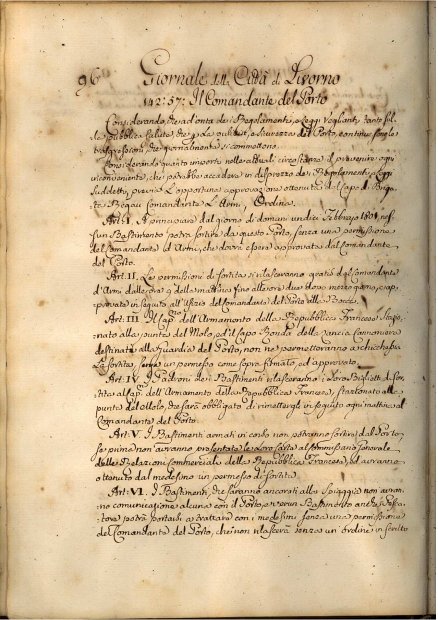 96 Giornale 14. Città di Livorno
142: 57: Il Comandante del Porto
Considerando, che ad onta dei Regolamenti, e Leggi Veglianti tanto sul-
la pubblica salute, che la e sicurezza del Porto, continue sono le
trasgressioni, che giornalmente si commettono.
Considerando quanto importi nelle attuali circostanze di prevenire ogni
inconveniente, che potrebbe accadere in disprezzo dei Regolamenti, e Leggi
suddetti, previa l'opportuna approvazione ottenuta dal Capo di Briga-
ta Comandante d'Armi, Ordina.
Art: I. A principiare dal giorno di domani undici Febbrajo 1801, nes-
sun Bastimento potrà sortire da questo Porto, senza una permissione
del Comandante d'Armi, che dovrà essere approvata dal Comandante
del Porto.
Art. II. Le permissioni di sortita si rilasceranno gratis dal Comandante
d'Armi dalle ore 9 della mattina fino alle ore due dopo mezzo giorno, e ap-
provate in seguito all'Ufizio del Comandante del Porto alla Bocca.
Art. III. Il Capno dell'Armamento della Repubblica Francese stazio-
nato alla punta del Molo, ed il Capo Ronda della Lancia Cannoniera
destinata alla Guardia del Porto, non ne permetteranno a chicchessia
la sortita, senza un permesso come sopra firmato, ed approvato.
Art. IV. I Padroni de' Bastimenti rilasceranno i loro Biglietti di sor-
tita al Capno dell'Armamento della Repubblica Francese, stazionato alla
punta del Molo, che sarà obbligato di rimettergli in seguito ogni mattina al
Comandante del Porto.
Art: V. I Bastimenti armati in corso non potranno sortire dal Porto
se prima non avranno presentate le loro carte al Commissario Generale
delle Relazioni Commerciali della Repubblica Francese, ed avranno
ottenuto dal medesimo un permesso di sortita.
Art: VI. I Bastimenti, che saranno ancorati alla Spiaggia non avran-
no comunicazione alcuna con il Porto, e verun Bastimento anche Pesca-
tore potrà portarsi a trattare con i medesimi senza una permissione
del Comandante del Porto, che non rilascerà senza un ordine in scritto